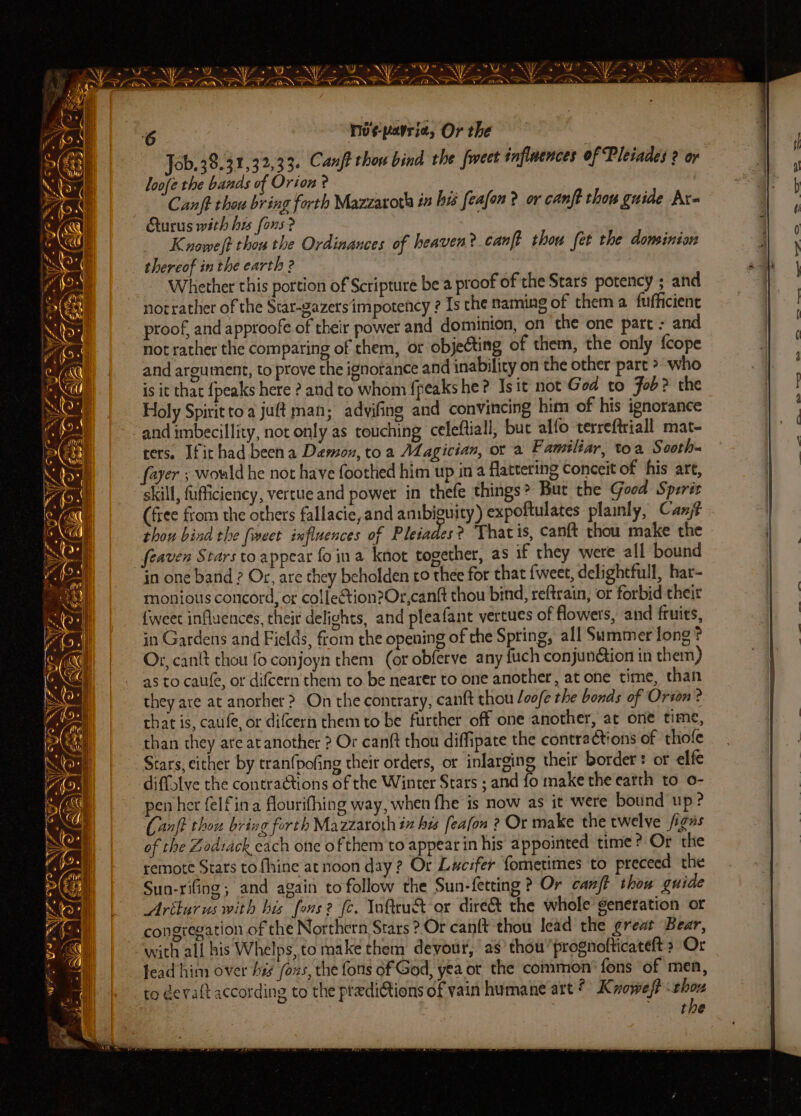 6 Πῦς-μαντία, Or the
Job.38.31,32,33. Canſt thou bind the ſweet influences of Pleiades ? or
looſe the bands of Orion ?
Canſt thou bring forth Mazzaroth in his ſeaſon ? or canſt thou guide Ar-
cturus with his ſons ?
Knoweſt thou the Ordinances of heaven ? canſt thou ſet the dominion
thereof in the earth ?
Whether this portion of Scripture be a proof of the Stars potency ; and
not rather of the Star-gazers impotency ? Is the naming of them a ſufficient
proof, and approofe of their power and dominion, on the one part : and
not rather the comparing of them, or objecting of them, the only ſcope
and argument, to prove the ignorance and inability on the other part ? who
is it that ſpeaks here ? and to whom ſpeaks he ? Is it not God to Job ? the
Holy Spirit to a juſt man; adviſing and convincing him of his ignorance
and imbecillity, not only as touching celeſtiall, but alſo terreſtriall mat-
ters. If it had been a Dæmon, to a Magician, or a Familiar, to a Sooth-
ſayer ; would he not have ſoothed him up in a flattering conceit of his art,
skill, ſufficiency, vertue and power in theſe things ? But the Good Spirit
(free from the others fallacie, and ambiguity) expoſtulates plainly, Canſt
thou bind the ſweet influences of Pleiades ? That is, canſt thou make the
ſeaven Stars to appear ſo in a knot together, as if they were all bound
in one band ? Or, are they beholden to thee for that ſweet, delightfull, har-
monious concord, or collection?Or,canſt thou bind, reſtrain, or forbid their
ſweet influences, their delights, and pleaſant vertues of flowers, and fruits,
in Gardens and Fields, from the opening of the Spring, all Summer long ?
Or, canſt thou ſo conjoyn them (or obſerve any ſuch conjunction in them)
as to cauſe, or diſcern them to be nearer to one another, at one time, than
they are at another ? On the contrary, canſt thou looſe the bonds of Orion ?
that is, cauſe, or diſcern them to be further off one another, at one time,
than they are at another ? Or canſt thou diſſipate the contractions of thoſe
Stars, either by tranſpoſing their orders, or inlarging their borders or elſe
diſſolve the contractions of the Winter Stars ; and ſo make the earth to o-
pen her ſelf in a flouriſhing way, when ſhe is now as it were bound up ?
Canſt thou bring forth Mazzaroth in his ſeaſon ? Or make the twelve ſigns
of the Zodiack each one of them to appear in his appointed time ? Or the
remote Stars to ſhine at noon day ? Or Lucifer ſometimes to preceed the
Sun-riſing; and again to follow the Sun-ſetting ? Or canſt thou guide
Arcturus with his ſons ? ſc. Inſtruct or direct the whole generation or
congregation of the Northern Stars ? Or canſt thou lead the great Bear,
with all his Whelps, to make them devour, as thou prognoſticateſt ? Or
lead him over his ſons, the ſons of God, yea or the common ſons of men,
to devaſt according to the prædictions of vain humane art ? Knoweſt thou
the